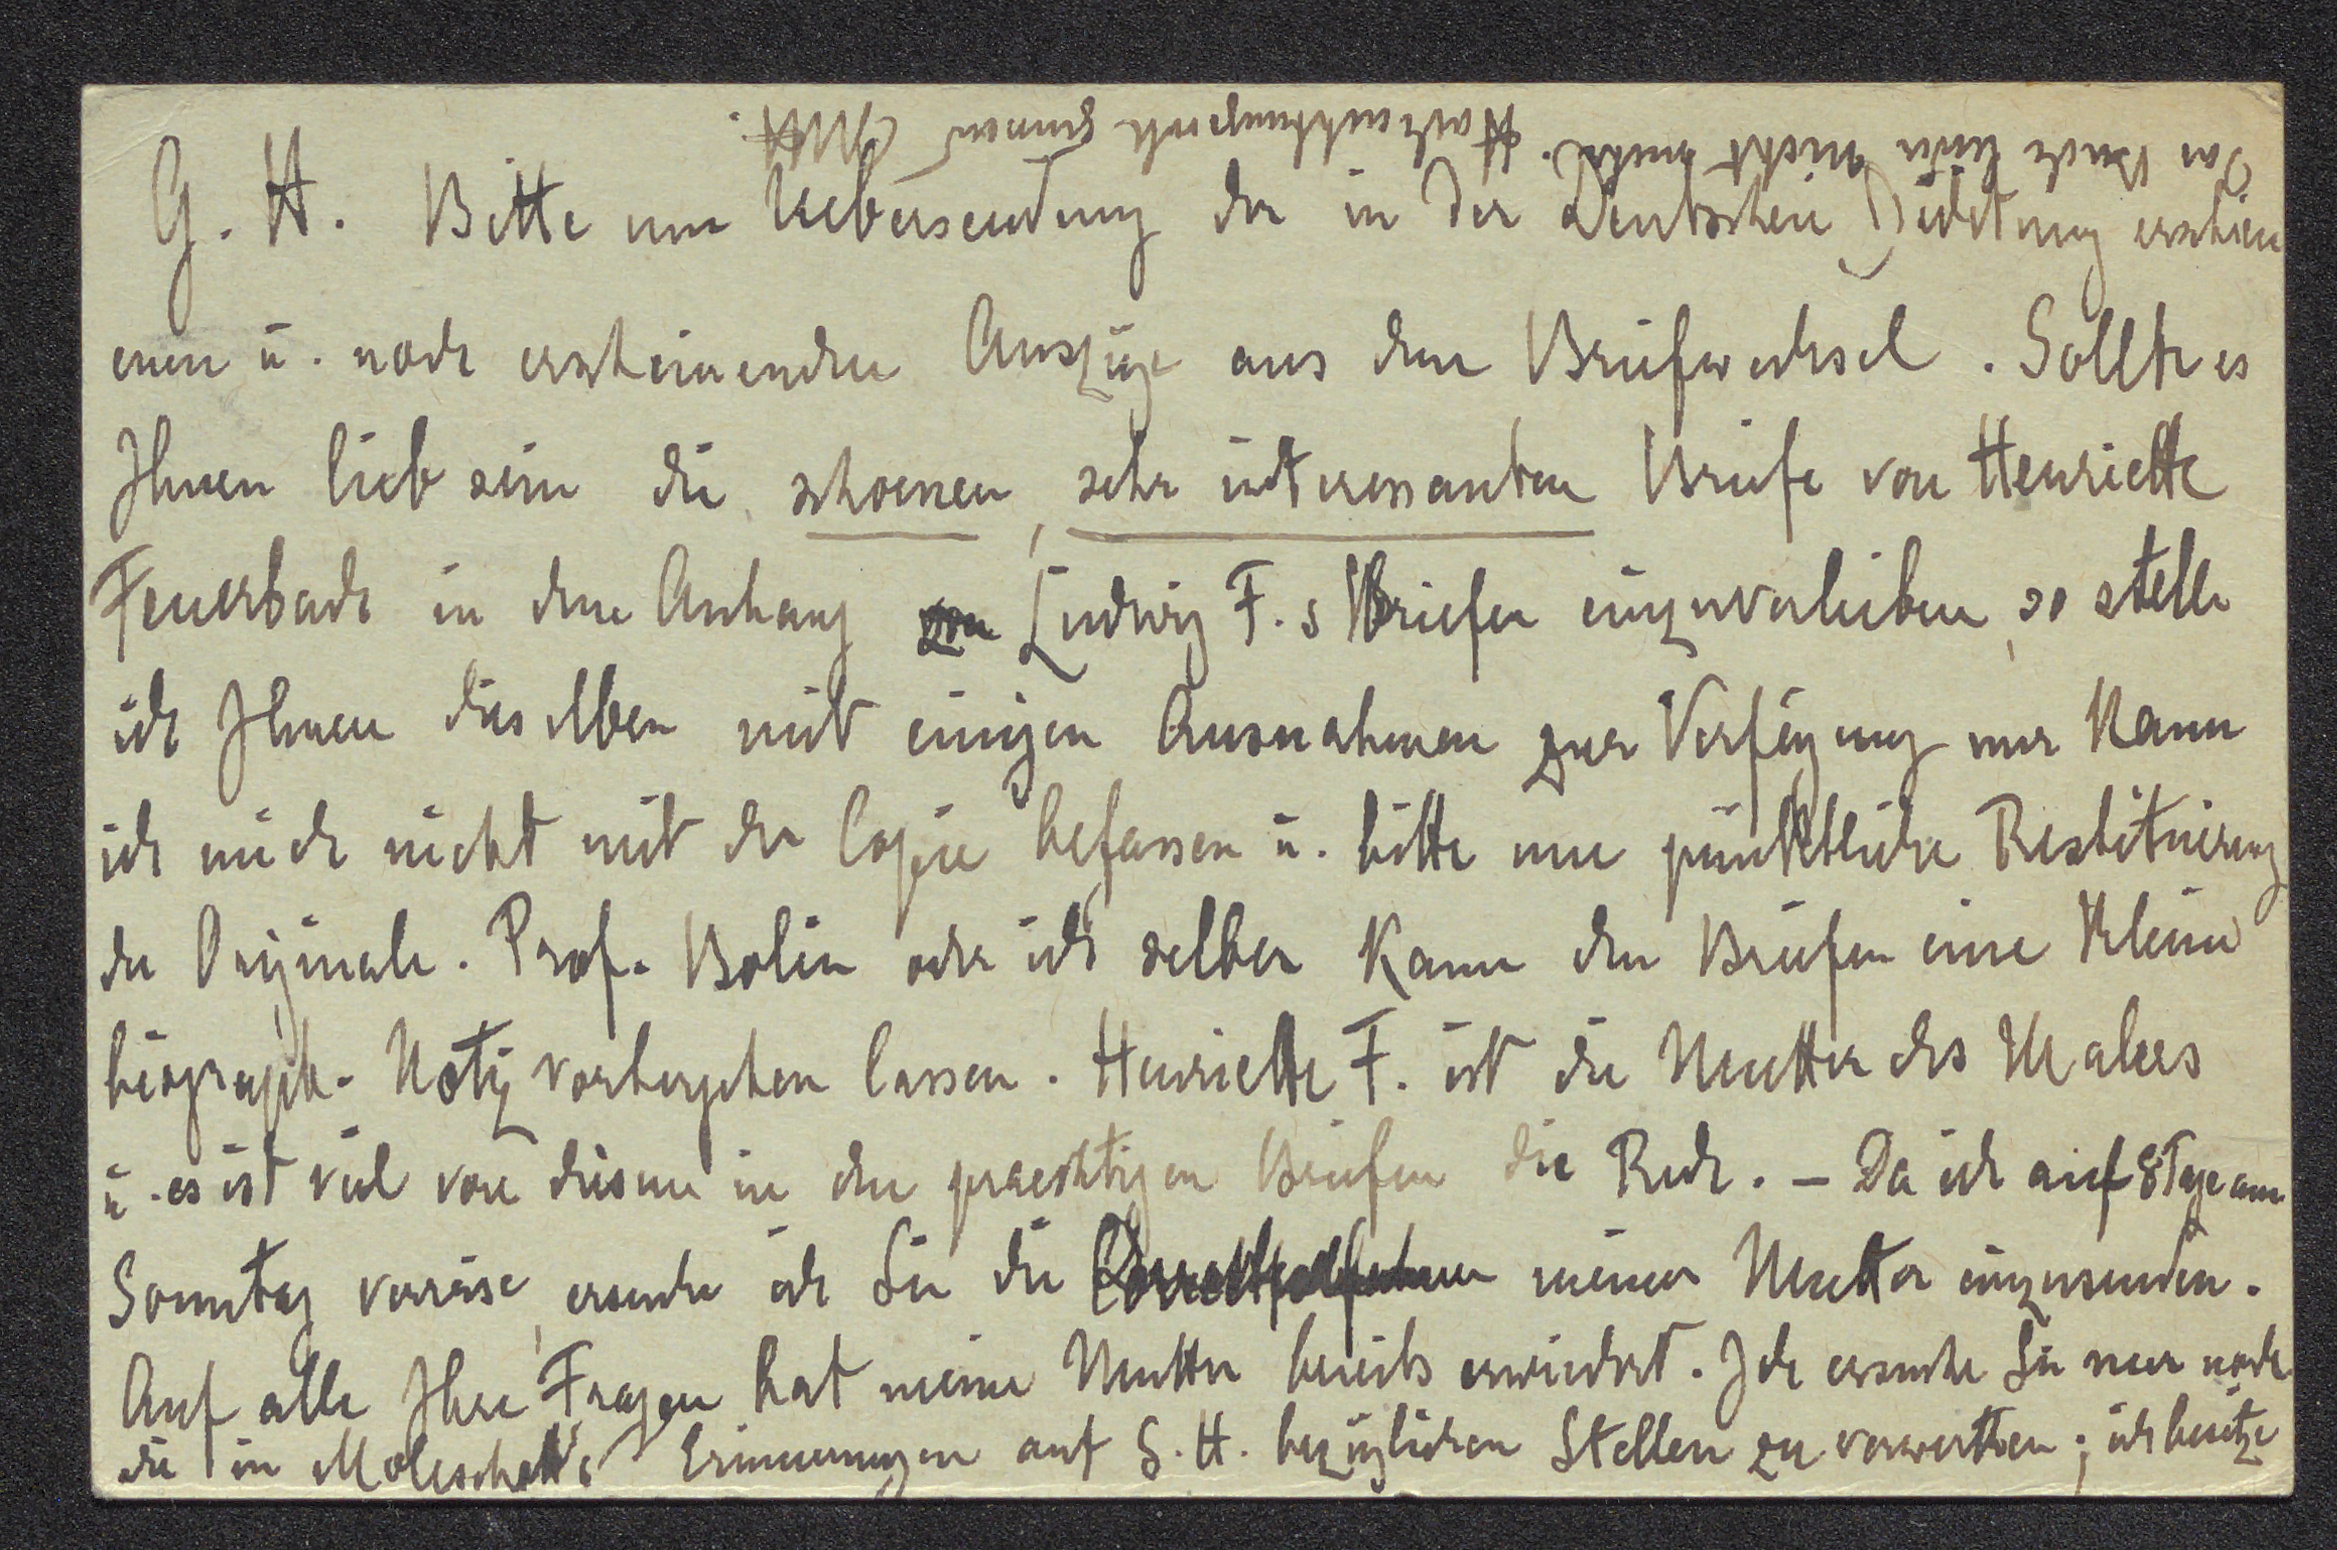 G. H. Bitte um Uebersendung der in der Deutschen Dichtung erschien
enen ū. noch erscheinenden Auszüge aus dem Briefwechsel. Sollte es
Ihnen lieb sein die schoenen, sehr interessanten Briefe von Henriette
Feuerbach in dem Anhang von Ludwig F.s Briefen einzuverleiben, so stelle
ich Ihnen dieselben mit einigen Ausnahmen zur Verfügung nur kann
ich mich nicht mit der Copie befassen ū. bitte um pünktliche Restituierung
der Originale. Prof. Bolin oder ich selber kann den Briefen eine kleine
biograph. Notiz vorhergehen lassen. Henriette F. ist die Mutter des Malers
ū. es ist viel von diesem in den praechtigen Briefen die Rede. – Da ich auf 8 Tage am
Sonntag verreise, ersuche ich Sie die meiner Mutter einzusenden.
Auf alle Ihre Fragen hat meine Mutter bereits erwiedert. Ich ersuche Sie nur noch
die in Moleschott's Erinnerungen auf G. H. bezüglichen Stellen zu verwerthen; ich besitze
das Buch leider nicht mehr. Hochachtungsvoll